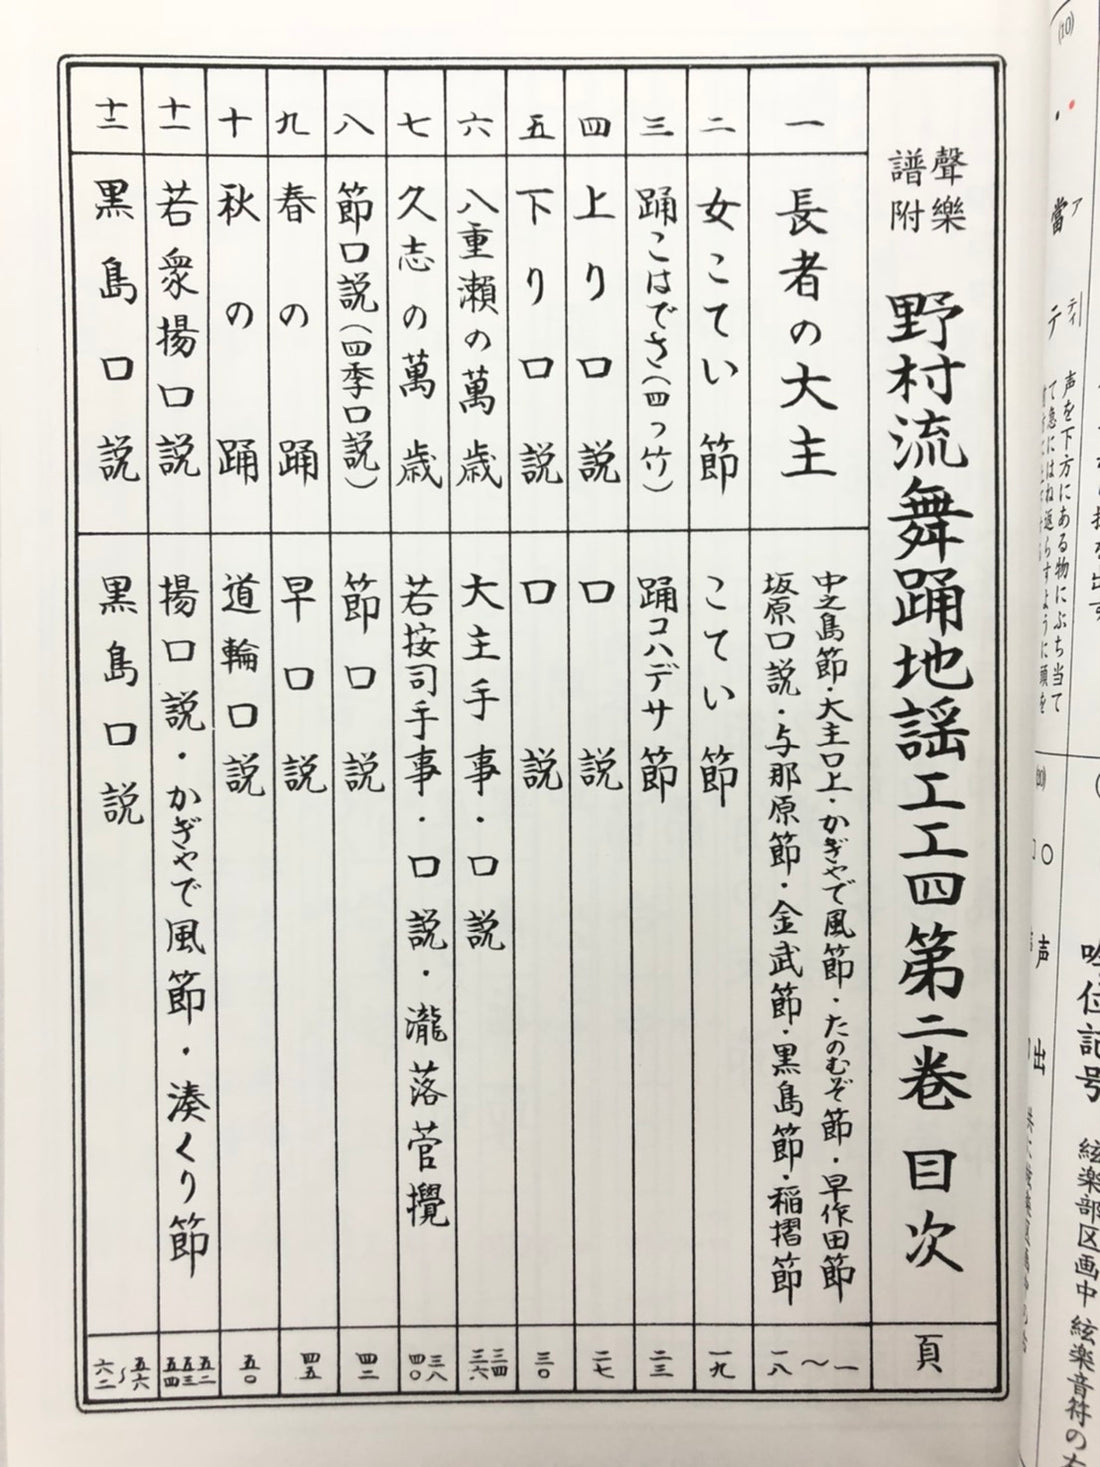 聲樂譜附 野村流舞踊地謡工工四第二巻 目次 頁
一 長者の大主 中之島節・大主口上・かぎやで風節・たのむぞ節・早作田節
坂原口説・与那原節・金武節・黒島節・稲摺節 一〜一八
二 女こてい節 こてい節 一九
三 踊こはでさ(四つ竹) 踊コハデサ節 二三
四 上り口説 口説 二七
五 下り口説 口説 三〇
六 八重瀬の萬歳 大主手事・口説 三四 三六
七 久志の萬歳 若按司手事・口説・瀧落菅攪 三八 四〇
八 節口説(四季口説) 節口説 四二
九 春の踊 早口説 四五
十 秋の踊 道輪口説 五〇
十一 若衆揚口説 揚口説・かぎやで風節・湊くり節 五二 五三 五四
十二 黒島口説 黒島口説 五六〜六二
(10)
・ 當 ア
テ ティ
声を下方にある物にぶち当て
て急にはね返らすように頭を
(20)
○
声
出
吟位記号 絃楽部区画中 絃楽音符の右